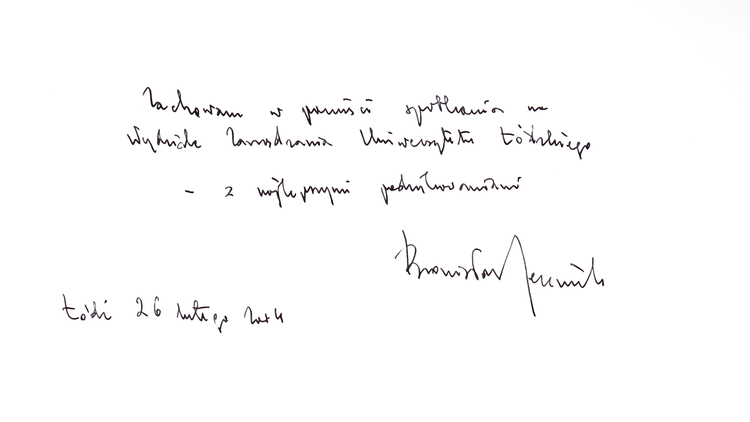 Zachowam w pamięci spotkania na
Wydziale Zarządzania Uniwersytetu Łódzkiego
- z najlepszymi podziękowaniami
Bronisław
Łódź 26 lutego 2014